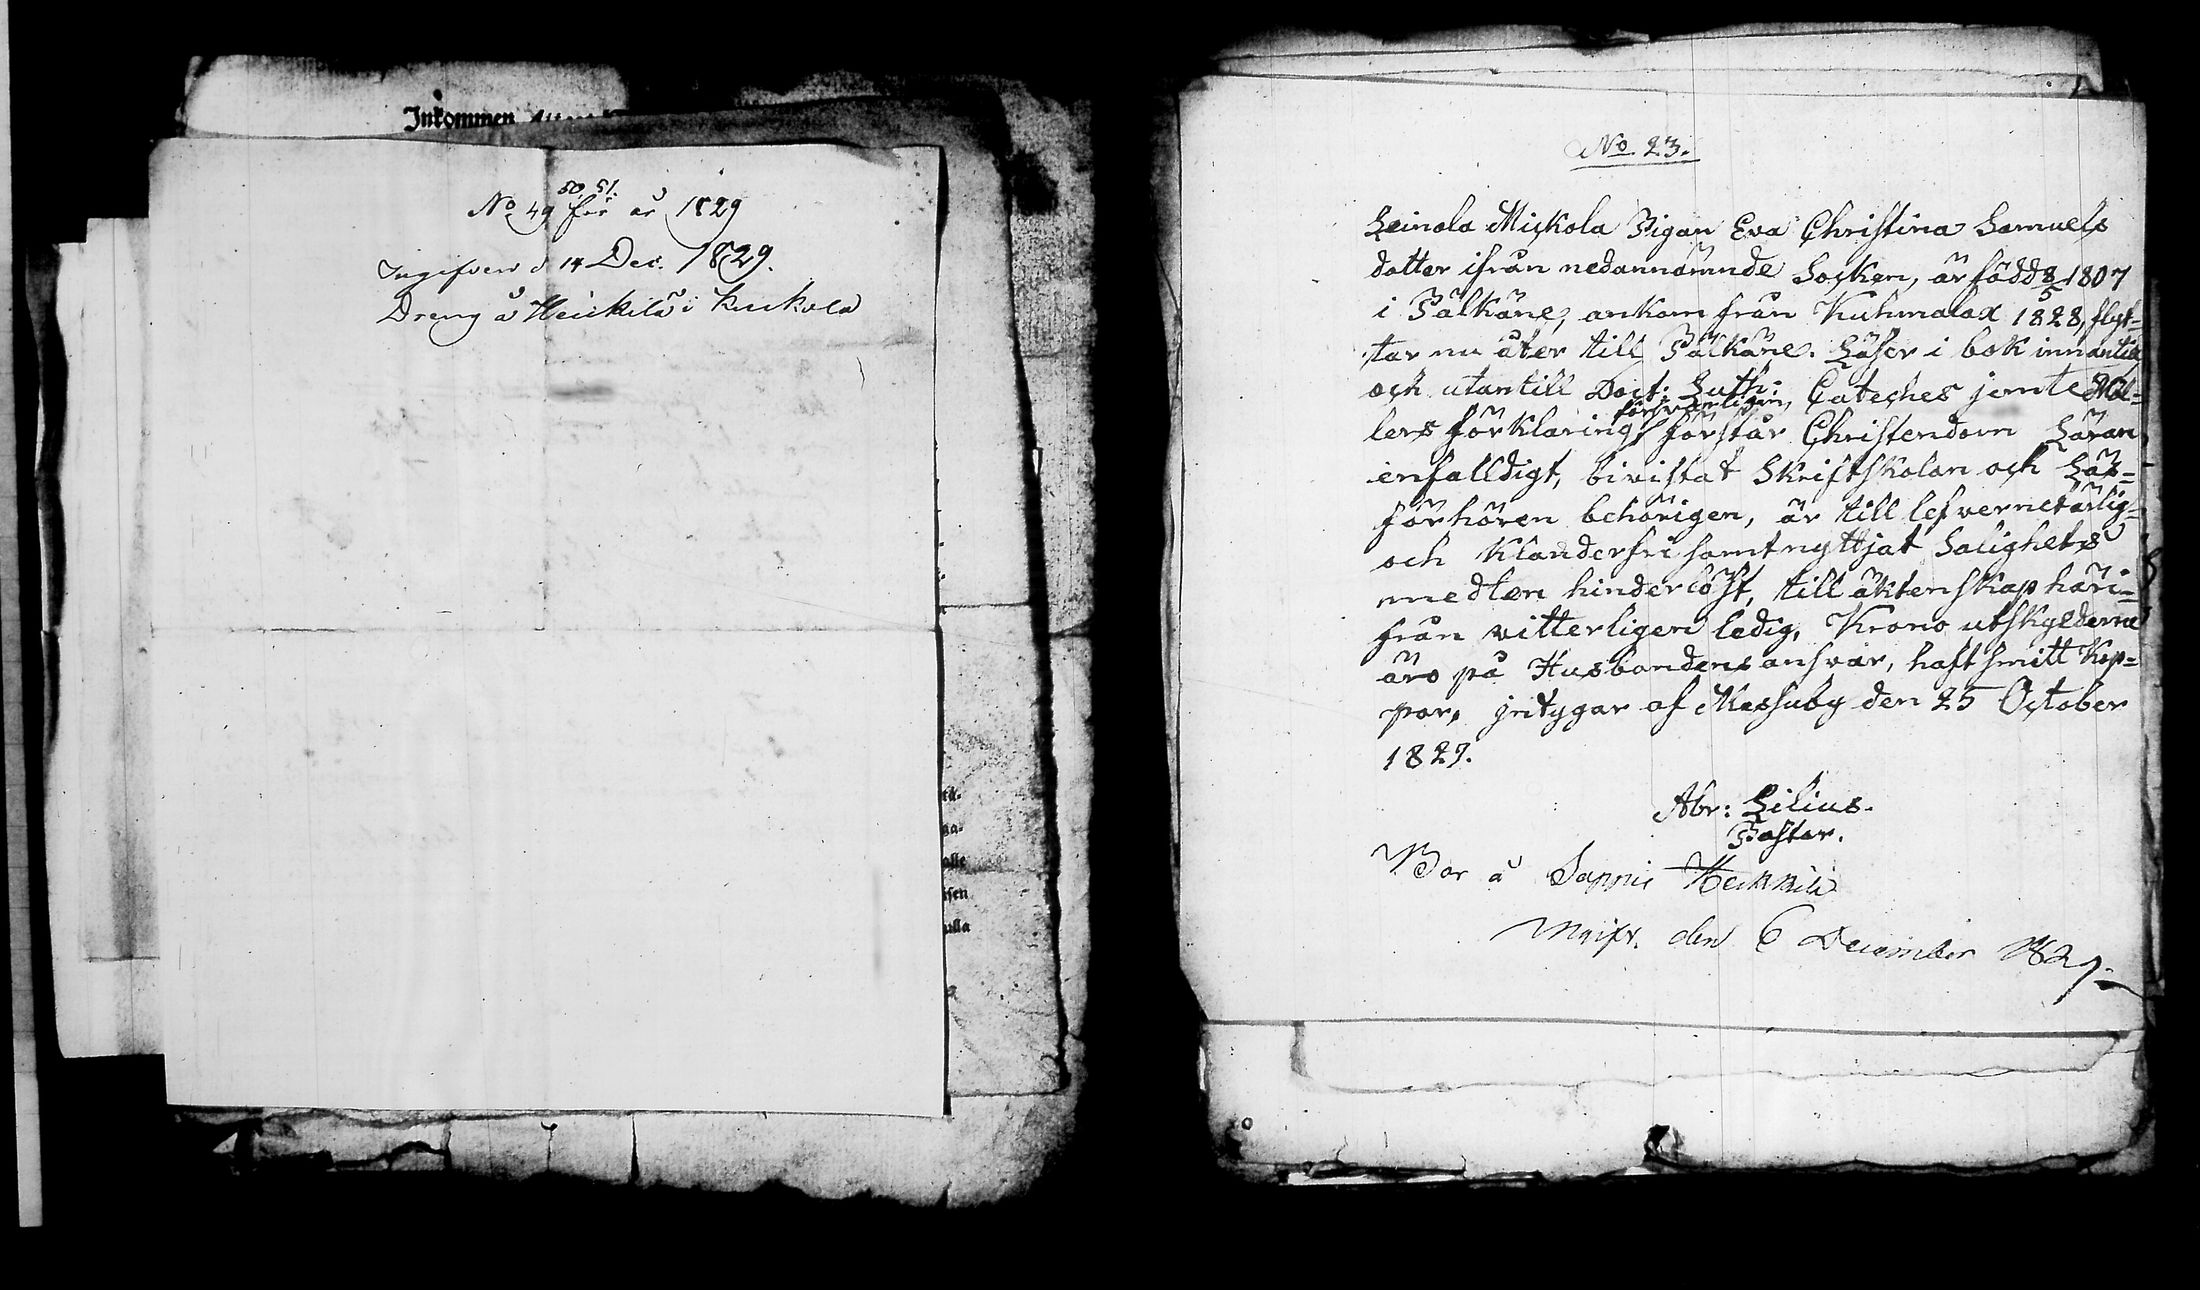 Inkommen
50. 51.
No 49 för år 1829
Ingifven d 14 Dec. 1829.
Dreng å Heickilä i Kuckola
tä-
ga-
alle
isen
ulla
No 23.
Leinola Mickola Pigan Eva Christina Samuels
dotter ifrån nedannämnde Socken, är född 8/5 1807
i Pälkäne, ankom från Kuhmalax 1828, flyt=
tar nu åter till Pälkäne. Läser i bok innantill
och utantill Doct: Luth: Cateches jemte Möl=
försvarligen,
lers förklaring, förstår Christendom Läran
enfalldigt, bivistat Skriftskolan och Läs=
förhören behörigen, är till lefvernet ärlig
och klanderfri samt nyttjat Salighets
medlen hinderlöst, till äktenskap häri=
från vitterligen ledig, Krono utskylderna
äro på Husbondens ansvar, haft smitt Kop=
por, intygar af Messuby den 25 October
1829.
Abr: Lilius.
Pastor.
Bor å Sappis Heickilä
den 6 December 1829.